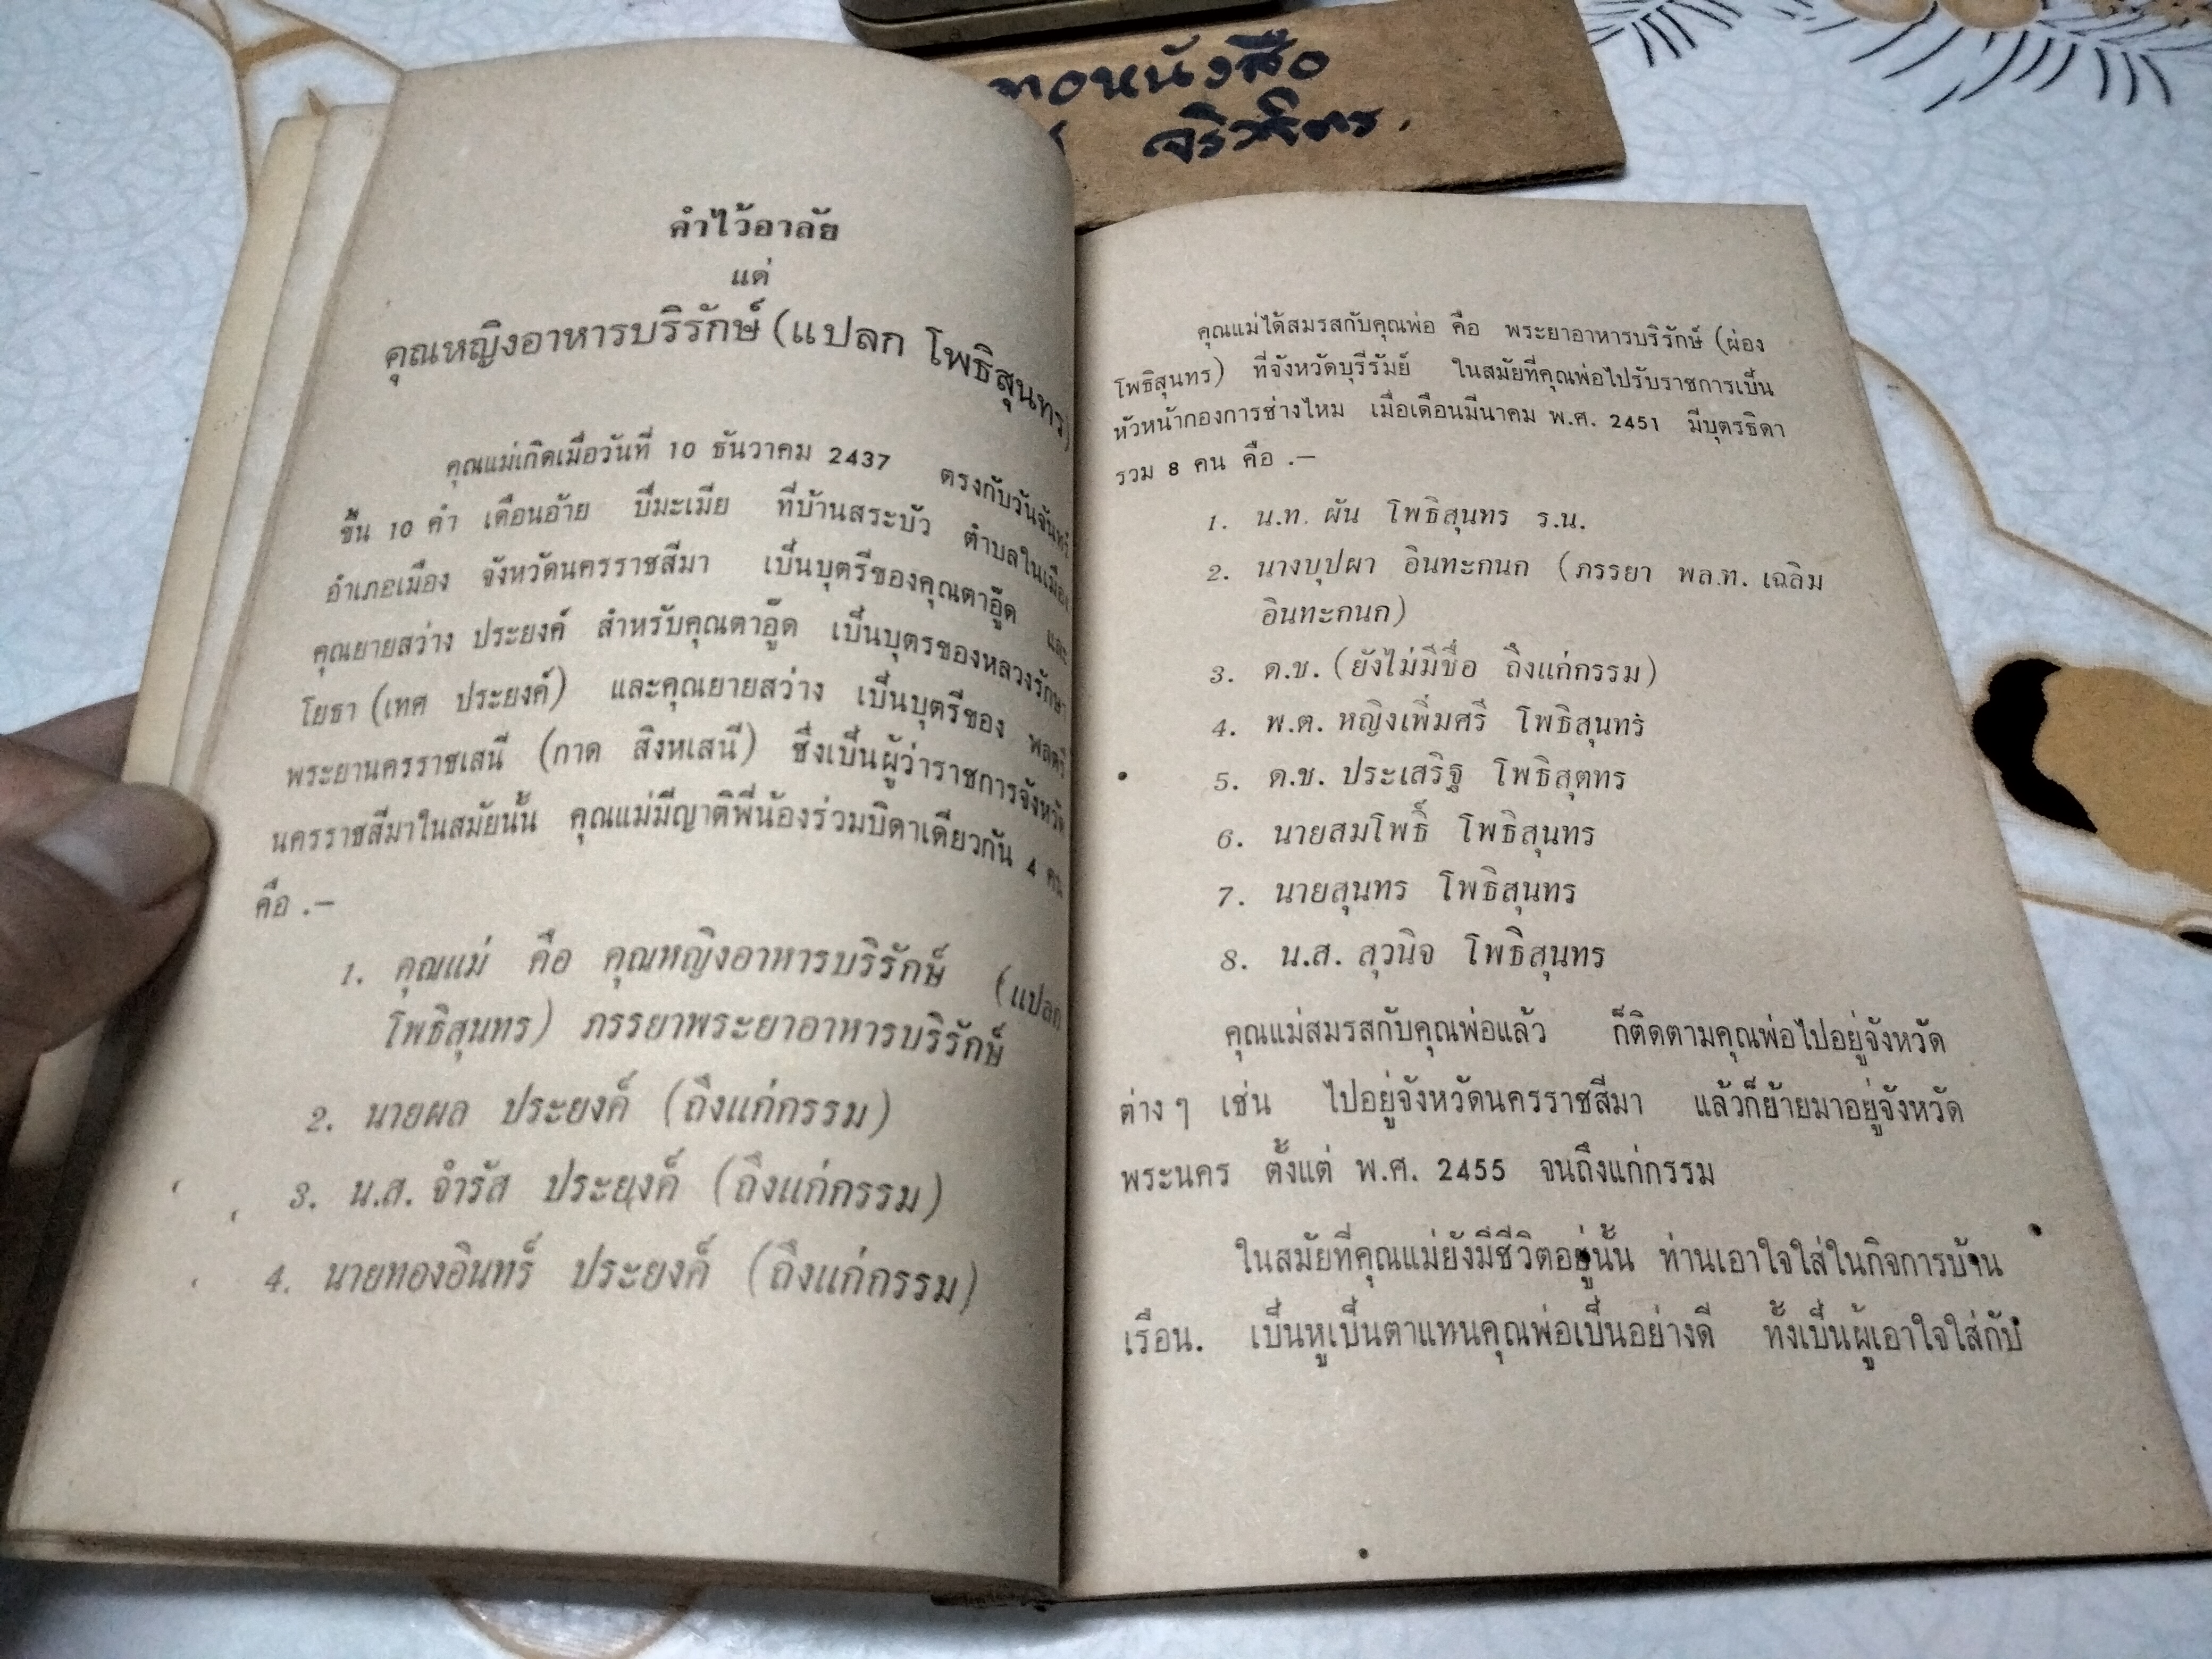 คำไว้อาลัย
แด่
คุณหญิงอาหารบริรักษ์ (แปลก โพธิสุนทร)
คุณแม่เกิดเมื่อวันที่ 10 ธันวาคม 2437 ตรงกับวันจันทร์
ขึ้น 10 ค่ำ เดือนอ้าย ปีมะเมีย ที่บ้านสระบัว ตำบลในเมือง
อำเภอเมือง จังหวัดนครราชสีมา เป็นบุตรีของคุณตาอู๊ด และ
คุณยายสว่าง ประยงค์ สำหรับคุณตาอู๊ด เป็นบุตรของหลวงรักษา
โยธา (เทศ ประยงค์) และคุณยายสว่าง เป็นบุตรีของ พลตรี
พระยานครราชเสนี (กาด สิงหเสนี) ซึ่งเป็นผู้ว่าราชการจังหวัด
นครราชสีมาในสมัยนั้น คุณแม่มีญาติพี่น้องร่วมบิดาเดียวกัน 4 คน
คือ .—
1. คุณแม่ คือ คุณหญิงอาหารบริรักษ์ (แปลก
โพธิสุนทร) ภรรยาพระยาอาหารบริรักษ์
2. นายผล ประยงค์ (ถึงแก่กรรม)
3. น.ส. จำรัส ประยงค์ (ถึงแก่กรรม)
4. นายทองอินทร์ ประยงค์ (ถึงแก่กรรม)
คุณแม่ได้สมรสกับคุณพ่อ คือ พระยาอาหารบริรักษ์ (ผ่อง
โพธิสุนทร) ที่จังหวัดบุรีรัมย์ ในสมัยที่คุณพ่อไปรับราชการเป็น
หัวหน้ากองการช่างไหม เมื่อเดือนมีนาคม พ.ศ. 2451 มีบุตรธิดา
รวม 8 คน คือ .—
1. น.ท. ผัน โพธิสุนทร ร.น.
2. นางบุปผา อินทะกนก (ภรรยา พล.ท. เฉลิม
อินทะกนก)
3. ด.ช. (ยังไม่มีชื่อ ถึงแก่กรรม)
4. พ.ต. หญิงเพิ่มศรี โพธิสุนทร
5. ด.ช. ประเสริฐ โพธิสุตทร
6. นายสมโพธิ์ โพธิสุนทร
7. นายสุนทร โพธิสุนทร
8. น.ส. สุวนิจ โพธิสุนทร
คุณแม่สมรสกับคุณพ่อแล้ว ก็ติดตามคุณพ่อไปอยู่จังหวัด
ต่างๆ เช่น ไปอยู่จังหวัดนครราชสีมา แล้วก็ย้ายมาอยู่จังหวัด
พระนคร ตั้งแต่ พ.ศ. 2455 จนถึงแก่กรรม
ในสมัยที่คุณแม่ยังมีชีวิตอยู่นั้น ท่านเอาใจใส่ในกิจการบ้าน
เรือน. เป็นหูเป็นตาแทนคุณพ่อเป็นอย่างดี ทั้งเป็นผู้เอาใจใส่กับ